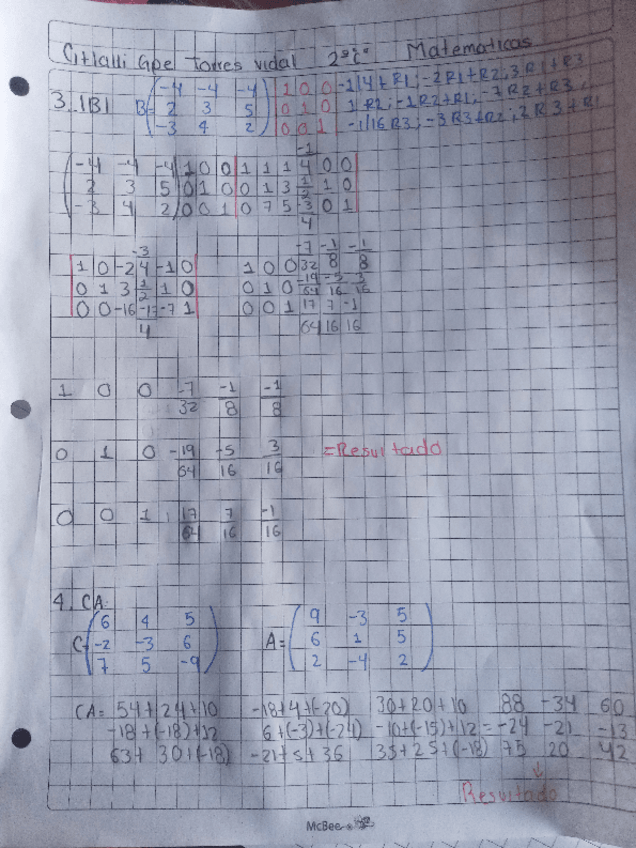 Citlalli Gpe Torres Vidal 2°"i" Matematicas
3. |B| B= -4 -4 -4 | 1 0 0 -1/4 + R1; -2 R1 + R2; 3 R1 + R3
2 3 5 | 0 1 0 1 R2; -1 R2 + R1; -7 R2 + R3;
-3 4 2 | 0 0 1 -1/16 R3; -3 R3 + R2; 2 R3 + R1
-4 -4 -4 1 0 0 1 1 1 -1/4 0 0
2 3 5 0 1 0 0 1 3 1/2 1 0
-3 4 2 0 0 1 0 7 5 -3/4 0 1
1 0 -2 -3/4 -1 0 1 0 0 -7/32 -1/8 -1/8
0 1 3 1/2 1 0 0 1 0 -19/64 -5/16 3/16
0 0 -16 -17/4 -7 1 0 0 1 17/64 7/16 -1/16
1 0 0 -7/32 -1/8 -1/8
0 1 0 -19/64 -5/16 3/16 = Resultado
0 0 1 17/64 7/16 -1/16
4. CA
C= 6 4 5 A= 9 -3 5
-2 -3 6 6 1 5
7 5 -9 2 -4 2
CA= 54+24+10 -18+4+(-20) 30+20+10 88 -34 60
-18+(-18)+12 6+(-3)+(-24) -10+(-15)+12 = -24 -21 -13
63+30+(-18) -21+5+36 35+25+(-18) 75 20 42
Resultado
McBee